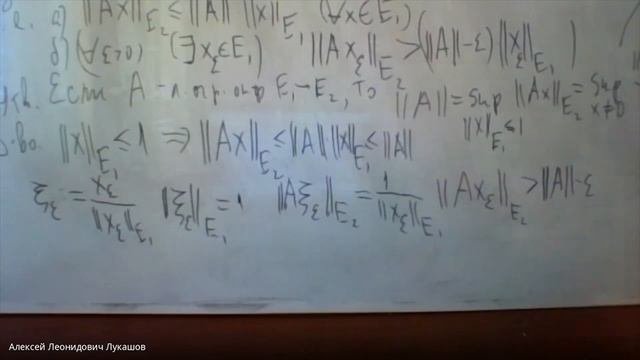 т.е. а) ||Ax||_{E_2} ≤ ||A|| ||x||_{E_1} (∀x∈E_1)
б) (∀ε>0) (∃x_ε∈E_1) ||Ax_ε||_{E_2} > (||A||-ε) ||x_ε||_{E_1}
Утв. Если A - л. огр. опр E_1→E_2, то ||A|| = sup_{||x||_{E_1}≤1} ||Ax||_{E_2} = sup_{x≠0}
Д-во. ||x||_{E_1} ≤ 1 ⇒ ||Ax||_{E_2} ≤ ||A|| ||x||_{E_1} ≤ ||A||
ξ_ε = x_ε/||x_ε||_{E_1} ||ξ_ε||_{E_1} = 1 ||Aξ_ε||_{E_2} = 1/||x_ε||_{E_1} ||Ax_ε||_{E_2} > ||A||-ε
Алексей Леонидович Лукашов